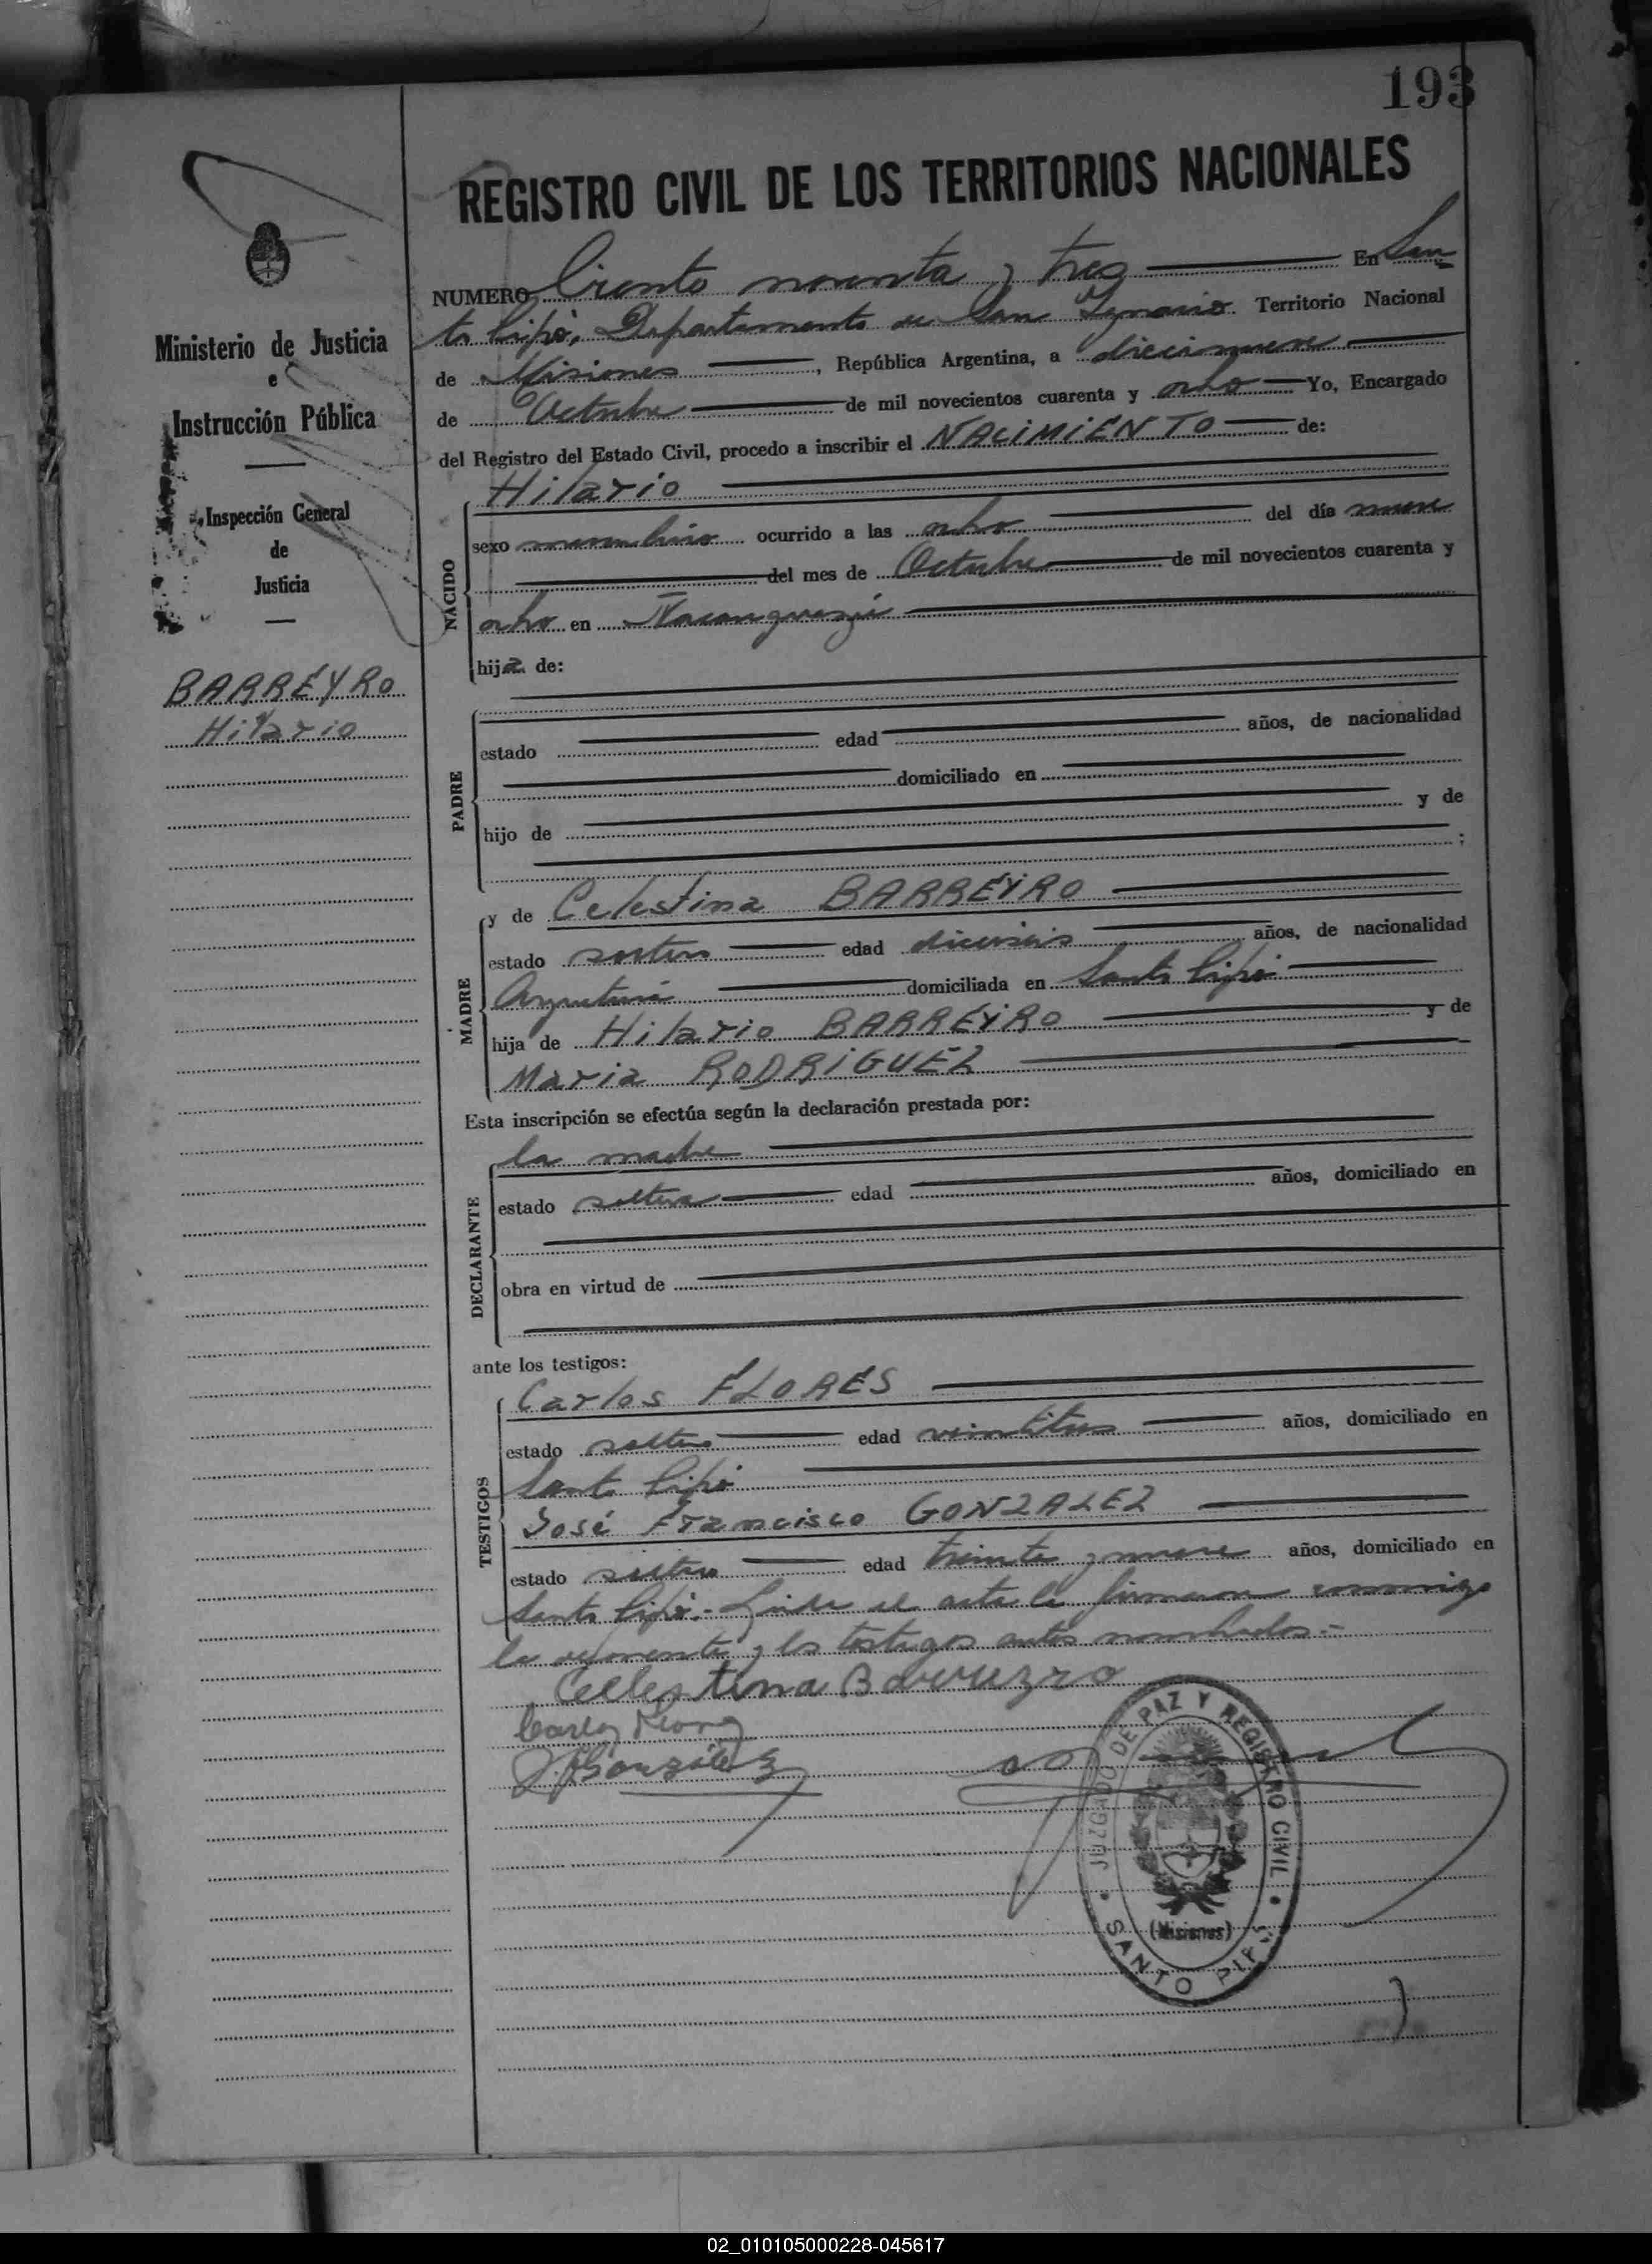 193
REGISTRO CIVIL DE LOS TERRITORIOS NACIONALES
NUMERO Ciento noventa y tres En San
to Pipó, Departamento de San Ignacio Territorio Nacional
de Misiones, República Argentina, a diecinueve
de Octubre de mil novecientos cuarenta y ocho Yo, Encargado
del Registro del Estado Civil, procedo a inscribir el NACIMIENTO de:
Ministerio de Justicia
e
Instrucción Pública
Inspección General
de
Justicia
BARREYRO
Hilario
NACIDO
Hilario
sexo masculino ocurrido a las ocho del día nueve
del mes de Octubre de mil novecientos cuarenta y
ocho en Ñacanguazú
hija de:
PADRE
estado edad años, de nacionalidad
domiciliado en
hijo de y de
;
MADRE
y de Celestina BARREYRO
estado soltera edad dieciseis años, de nacionalidad
Argentina domiciliada en Santo Pipó
hija de Hilario BARREYRO y de
Maria RODRIGUEZ
Esta inscripción se efectúa según la declaración prestada por:
DECLARANTE
la madre
estado soltera edad años, domiciliado en
obra en virtud de
ante los testigos:
TESTIGOS
Carlos FLORES
estado soltero edad veintitres años, domiciliado en
Santo Pipó
José Francisco GONZALEZ
estado soltero edad treinta y nueve años, domiciliado en
Santo Pipó.- Leida el acta la firman conmigo
la exponente y los testigos antes nombrados.-
Cellestina
Carlos
J. F. González
JUZGADO DE PAZ Y REGISTRO CIVIL
(Misiones)
SANTO PIPÓ
02_010105000228-045617